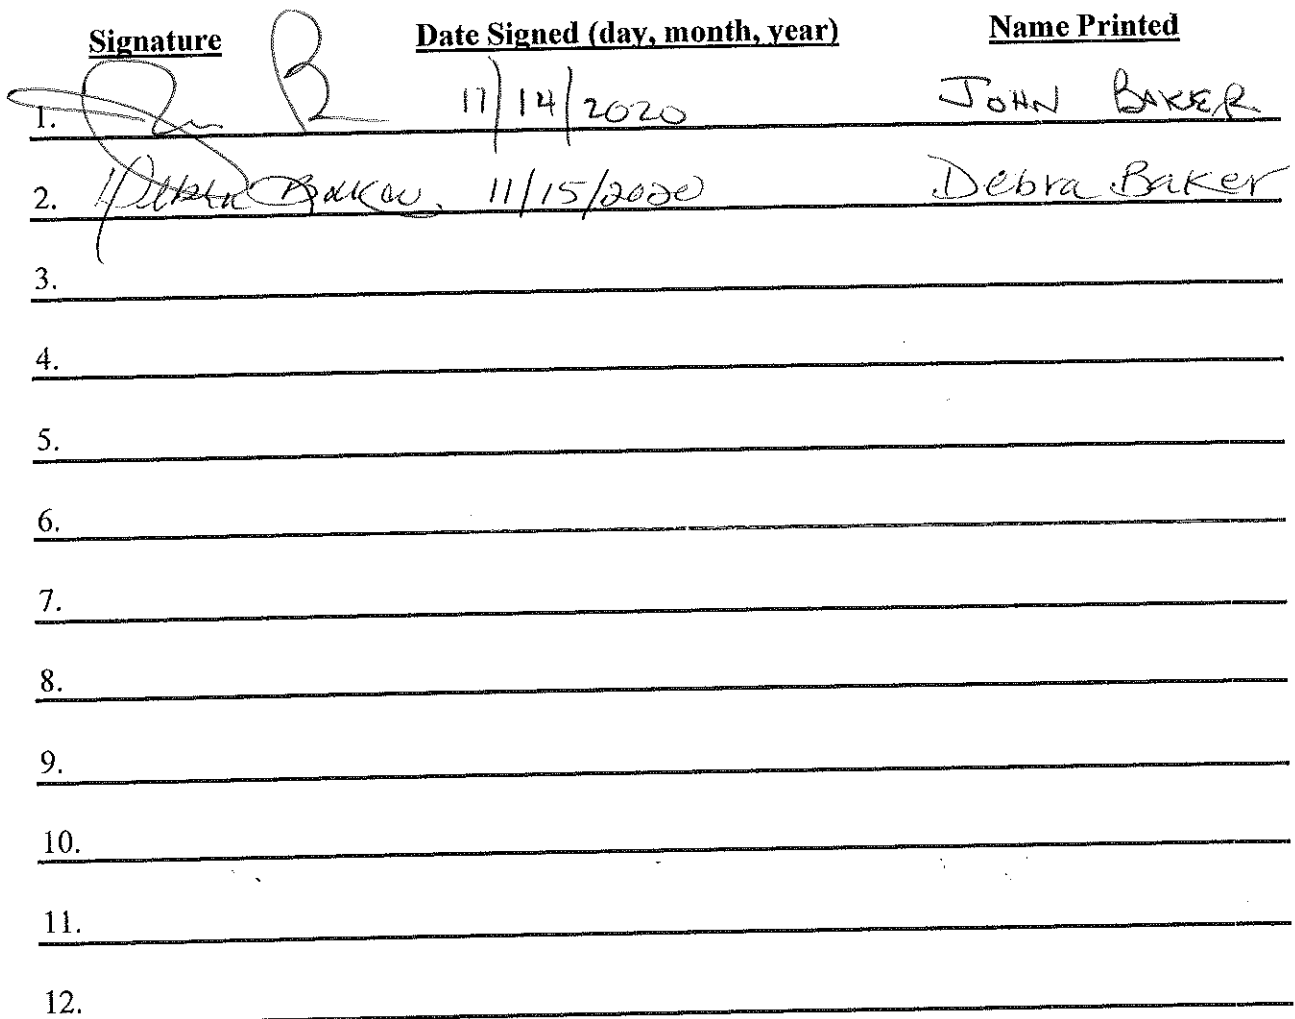 Signature Date Signed (day, month, year) Name Printed
1. 11/14/2020 JOHN BAKER
2. Debra Baker 11/15/2020 Debra Baker
3.
4.
5.
6.
7.
8.
9.
10.
11.
12.